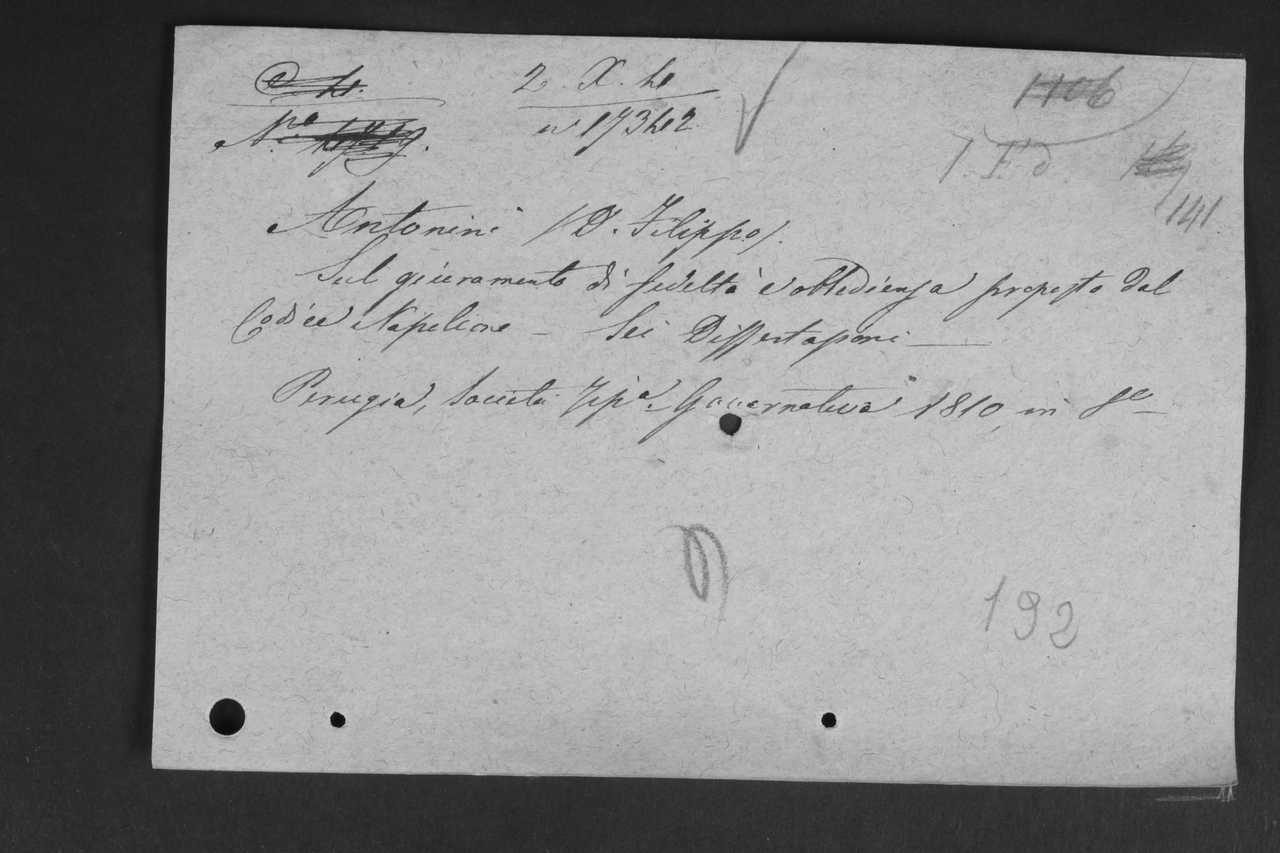 2. X. 4
n° 17342
1106
I. F. d.
141
Antonini (D. Filippo).
Sul giuramento di fedeltà e obbedienza proposto dal
Codice Napoleone — Sei Dissertazioni —
Perugia, Società Tip.ª Governativa 1810, in 8°
192